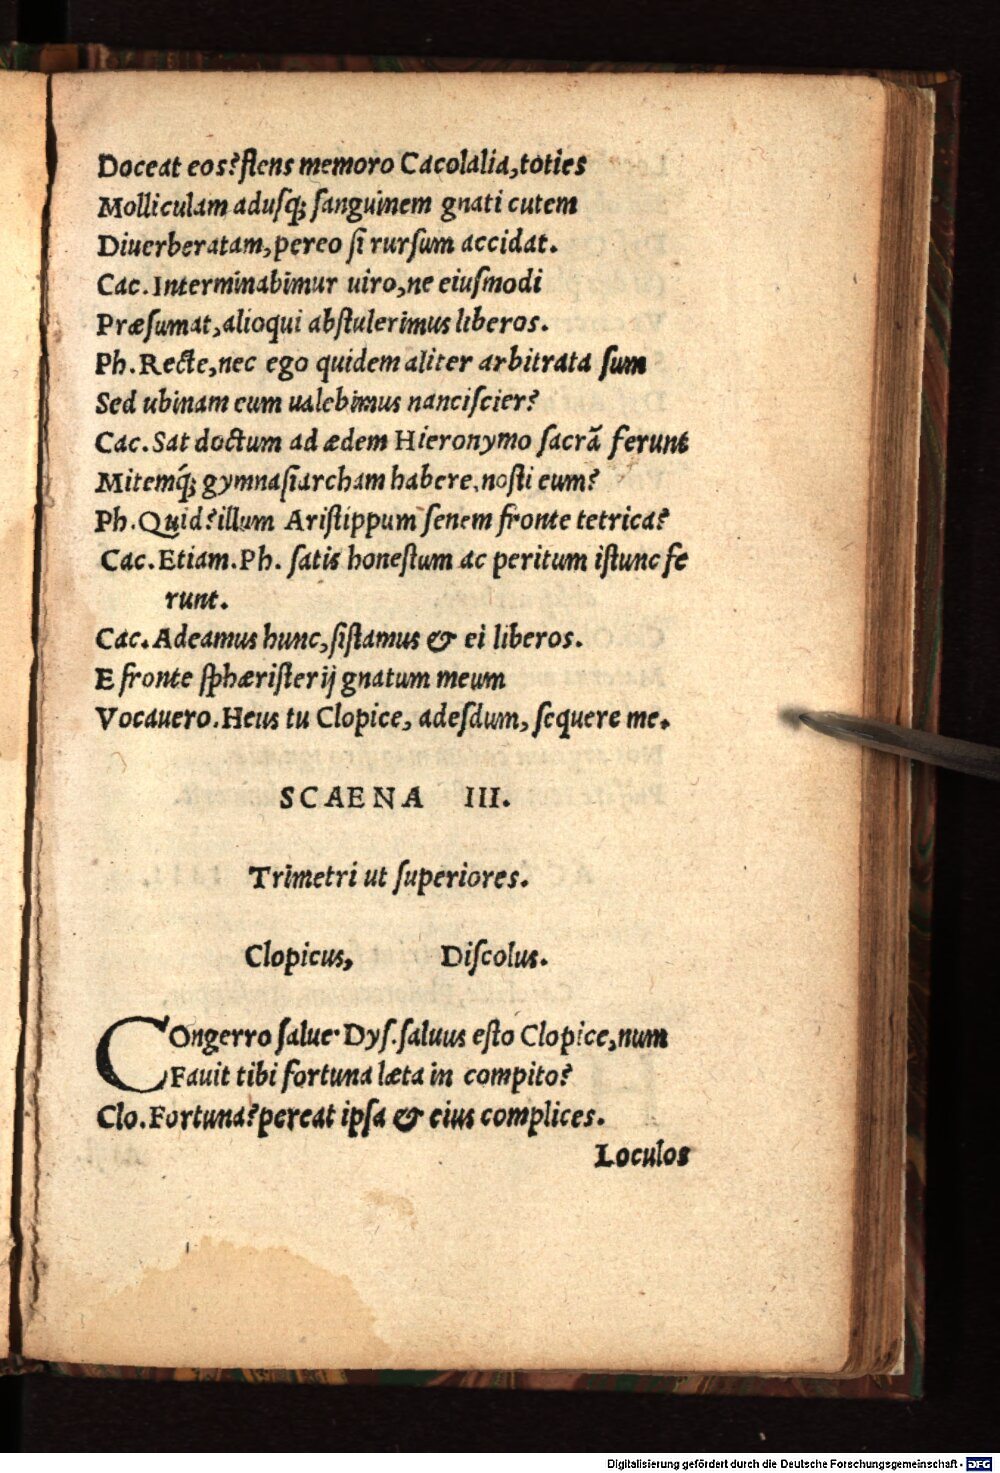 Doceat eos? flens memoro Cacolalia, toties
Molliculam adusq; sanguinem gnati cutem
Diuerberatam, pereo si rursum accidat.
Cac. Interminabimur uiro, ne eiusmodi
Præsumat, alioqui abstulerimus liberos.
Ph. Recte, nec ego quidem aliter arbitrata sum
Sed ubinam eum ualebimus nanciscier?
Cac. Sat doctum ad ædem Hieronymo sacrā ferunt
Mitemq́; gymnasiarcham habere, nosti eum?
Ph. Quid? illum Aristippum senem fronte tetrica?
Cac. Etiam. Ph. satis honestum ac peritum istunc fe
runt.
Cac. Adeamus hunc, sistamus & ei liberos.
E fronte sphæristerij gnatum meum
Vocauero. Heus tu Clopice, adesdum, sequere me.
SCAENA III.
Trimetri ut superiores.
Clopicus, Discolus.
COngerro salue· Dys. saluus esto Clopice, num
Fauit tibi fortuna læta in compito?
Clo. Fortuna? pereat ipsa & eius complices.
Loculos
Digitalisierung gefördert durch die Deutsche Forschungsgemeinschaft - DFG